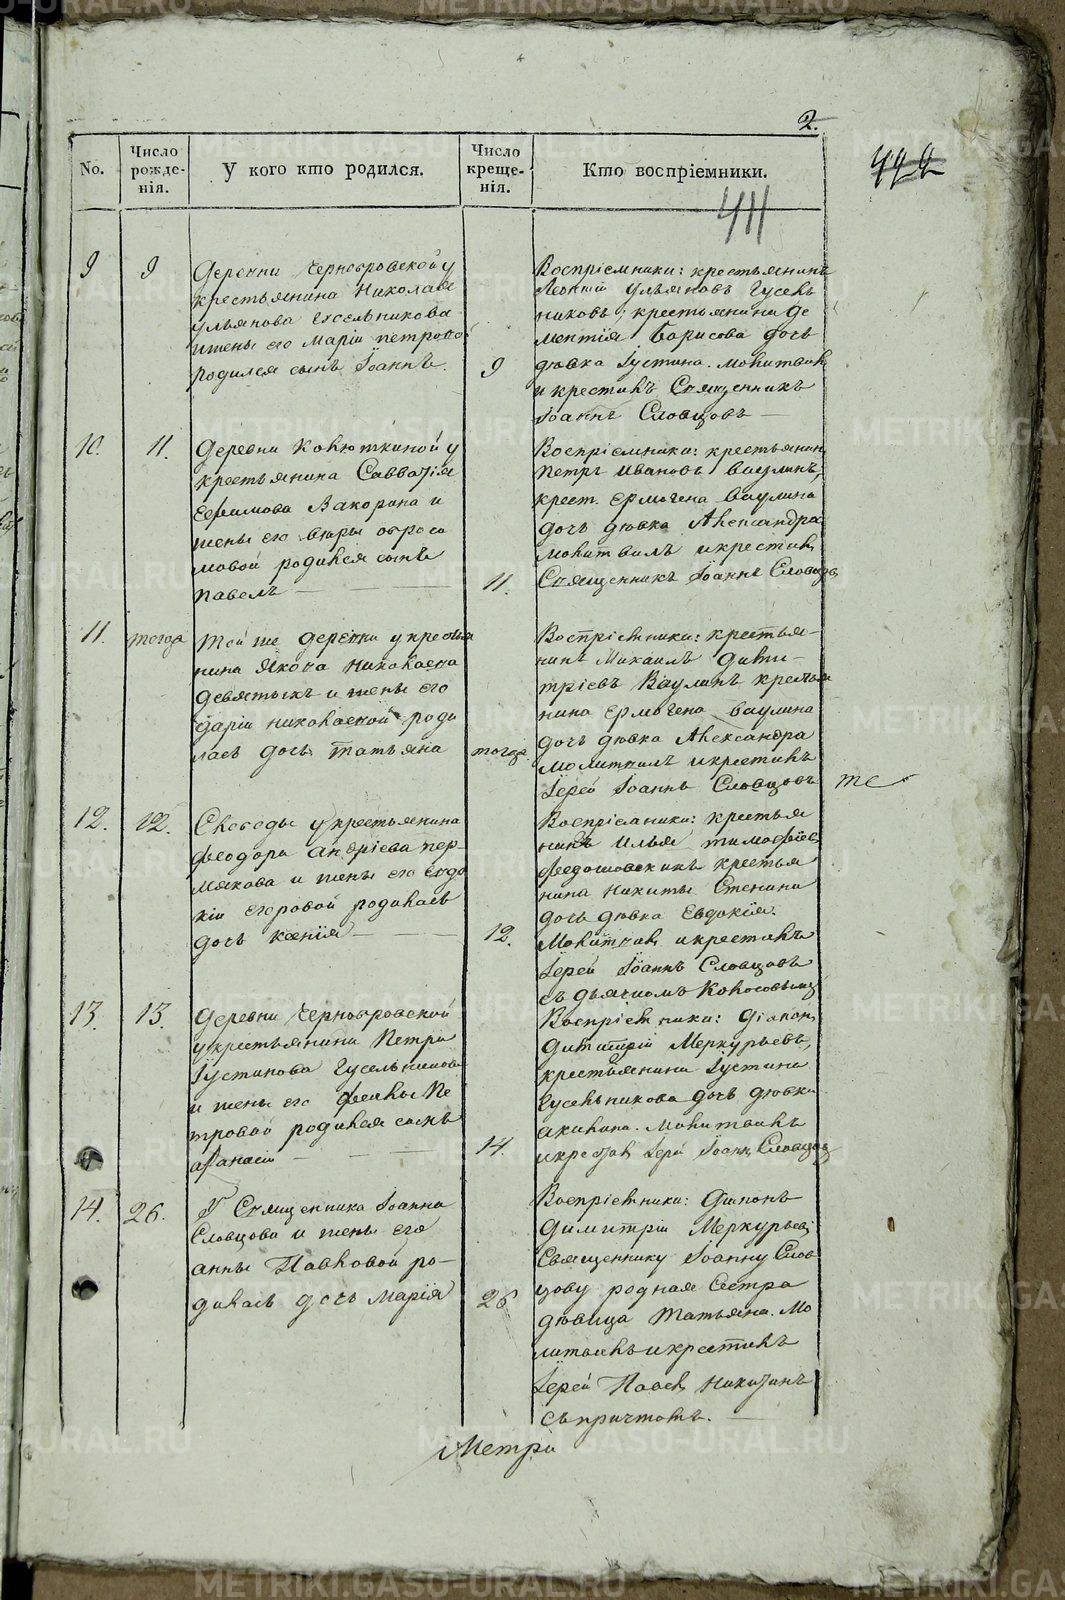 2.
442
No.
Число рожде-нія.
У кого кто родился.
Число креще-нія.
Кто воспріемники.
411
9
9
Деревни Чернобровской у
крестьянина Николая
Ульянова Гусельникова
и жены его Маріи Петровой
родился сынъ Іоаннъ.
9
Воспріемники: крестьянинъ
Леонтій Ульяновъ Гусель
никовъ, крестьянина Де
ментія Борисова дочь
дѣвка Іустина. Молитвилъ
и крестилъ Священникъ
Іоаннъ Словцовъ
10.
11.
Деревни Колюткиной у
крестьянина Савватія
Ефимова Вакорина и
жены его Вѣры Аброси
мовой родился сынъ
Павелъ
11.
Воспріемники: крестьянинъ
Петръ Ивановъ Ваулинъ,
крест. Ермогена Ваулина
дочь дѣвка Александра
Молитвилъ и крестилъ
Священникъ Іоаннъ Словцовъ
11.
тогда
Той же деревни у крестья
нина Якова Николаева
Девятыхъ и жены его
Даріи Николаевой роди
лась дочь Татьяна
тогда
Воспріемники: крестья-
нинъ Михаилъ Дими-
тріевъ Ваулинъ крестья
нина Ермогена Ваулина
дочь дѣвка Александра
Молитвилъ и крестилъ
Іерей Іоаннъ Словцовъ
те
12.
12.
Слободы у крестьянина
Феодора Андріева Пер-
мякова и жены его Евдо
кіи Егоровой родилась
дочь Ксенія
12.
Воспріемники: крестья
нинъ Илья Тимофіев
Федошовскихъ крестья
нина Никиты Стенина
дочь дѣвка Евдокія.
Молитвилъ и крестилъ
Іерей Іоаннъ Словцовъ
съ дьячкомъ Колосовымъ
13.
13.
Деревни Чернобровской
у крестьянина Петра
Іустинова Гусельникова
и жены его Феклы Пе
тровой родился сынъ
Афанасій
14.
Воспріемники: Діаконъ
Димитрій Меркурьевъ,
крестьянина Іустина
Гусельникова дочь дѣвка
Акилина. Молитвилъ
и крестилъ Іерей Іоаннъ Словцовъ
14.
26.
У Священника Іоанна
Словцова и жены его
Анны Павловой ро-
дилась дочь Марія
26
Воспріемники: Діаконъ
Димитрій Меркурьевъ
Священнику Іоанну Слов
цову родная Сестра
дѣвица Татьяна. Мо
литвилъ и крестилъ
Іерей Павелъ Никитинъ
съ причтомъ.
Метри